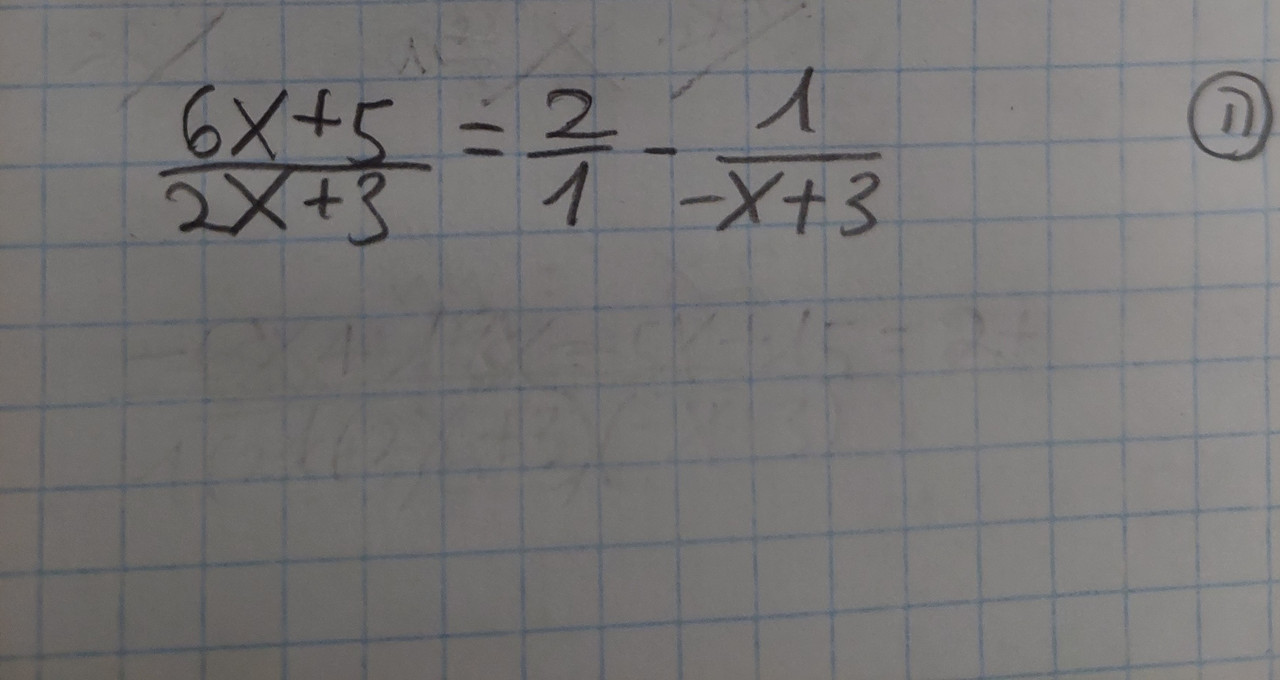 6x+5 / 2x+3 = 2/1 - 1 / -x+3
11